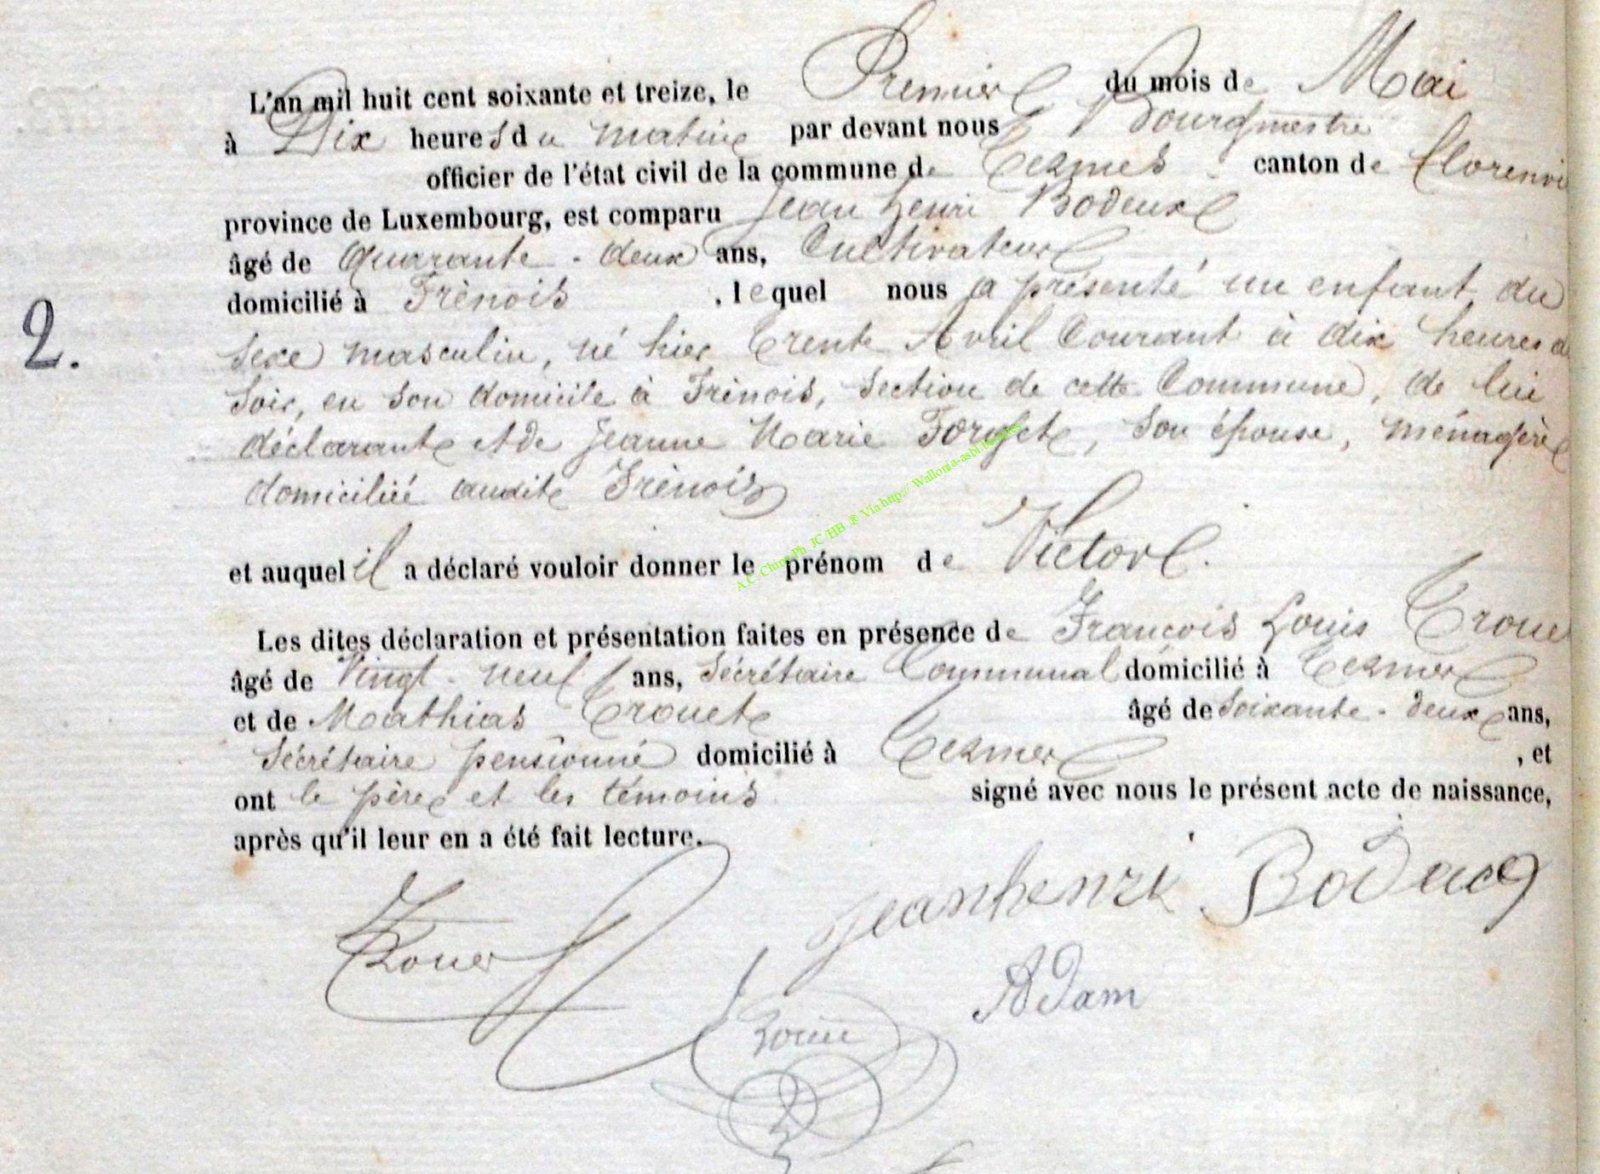 L'an mil huit cent soixante et treize, le Premier du mois de Mai
à Dix heures du matin par devant nous Bourgmestre
officier de l'état civil de la commune de Termes canton de Florenvi
province de Luxembourg, est comparu Jean henri Bodeux
âgé de Quarante-deux ans, Cultivateur
domicilié à Frènois, lequel nous a présenté un enfant du
2.
sexe masculin, né hier Trente Avril Courant à dix heures du
soir, en son domicile à Frènois, section de cette Commune, de lui
déclarant et de Jeanne Marie Forget, son épouse, ménagère
domiciliée audit Frènois
et auquel il a déclaré vouloir donner le prénom de Victor.
Les dites déclaration et présentation faites en présence de François Louis Troue
âgé de Vingt-neuf ans, Sécrétaire Communal domicilié à Termes
et de Mathias Trouet âgé de soixante-deux ans,
Sécrétaire pensionné domicilié à Termes, et
ont le père et les témoins signé avec nous le présent acte de naissance,
après qu'il leur en a été fait lecture.
Jeanhenri Bodeux
Trouet
Adam